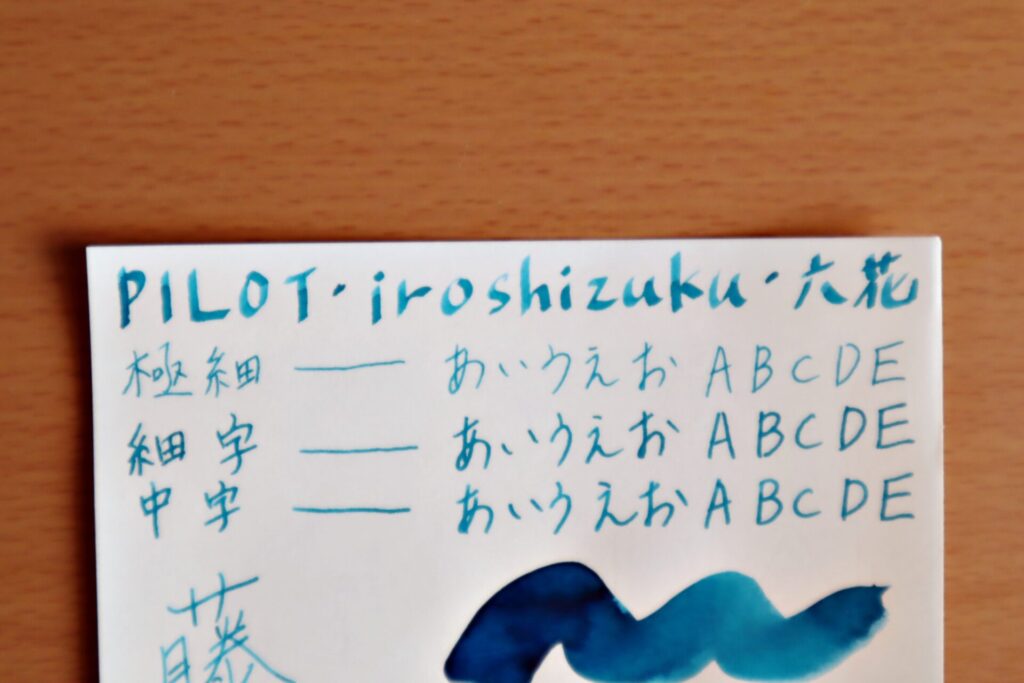 PILOT・iroshizuku・六花
極細 — あいうえお ABCDE
細字 — あいうえお ABCDE
中字 — あいうえお ABCDE
藤